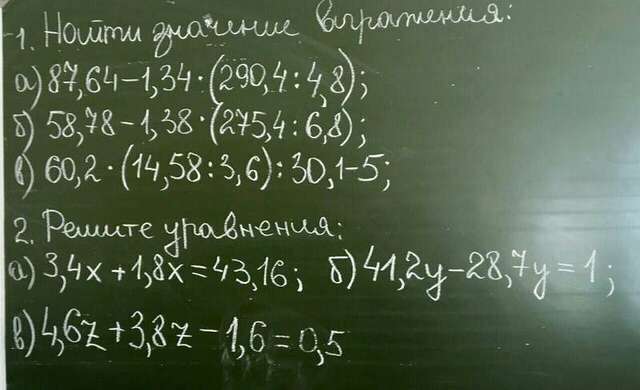 1. Найти значение выражения:
а) 87,64-1,34·(290,4:4,8);
б) 58,78-1,38·(275,4:6,8);
в) 60,2·(14,58:3,6):30,1-5;
2. Решите уравнения:
а) 3,4x+1,8x=43,16; б) 41,2y-28,7y=1;
в) 4,6z+3,8z-1,6=0,5